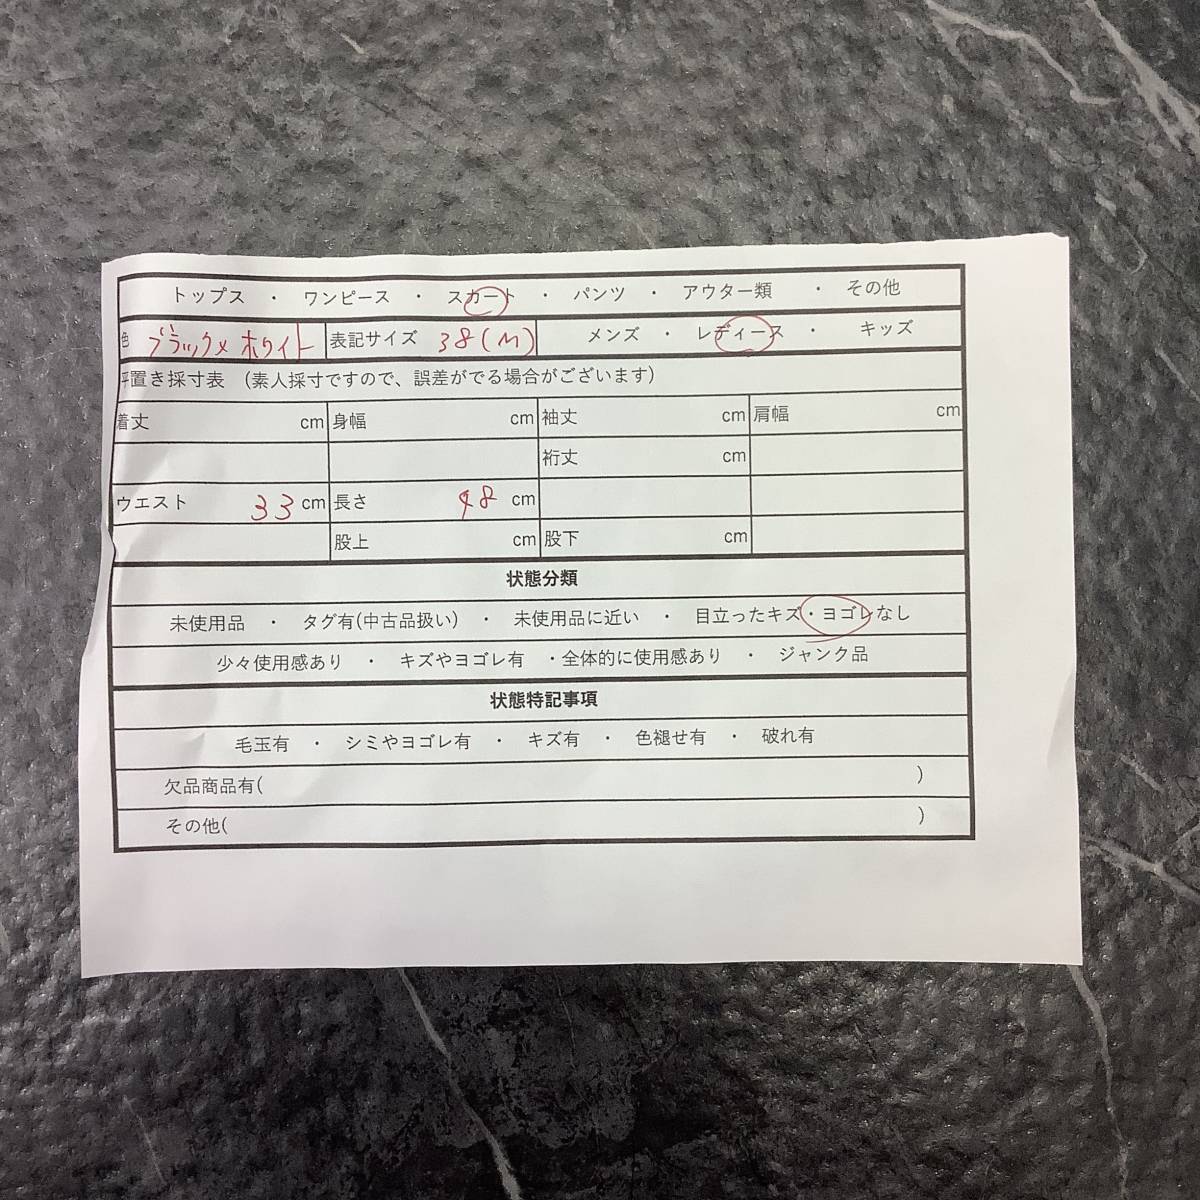 トップス ・ ワンピース ・ スカート ・ パンツ ・ アウター類 ・ その他
色 ブラック×ホワイト 表記サイズ 38(M) メンズ ・ レディース ・ キッズ
平置き採寸表 (素人採寸ですので、誤差がでる場合がございます)
着丈 cm 身幅 cm 袖丈 cm 肩幅 cm
裄丈 cm
ウエスト 33 cm 長さ 48 cm
股上 cm 股下 cm
状態分類
未使用品 ・ タグ有(中古品扱い) ・ 未使用品に近い ・ 目立ったキズ・ヨゴレなし
少々使用感あり ・ キズやヨゴレ有 ・全体的に使用感あり ・ ジャンク品
状態特記事項
毛玉有 ・ シミやヨゴレ有 ・ キズ有 ・ 色褪せ有 ・ 破れ有
欠品商品有( )
その他( )